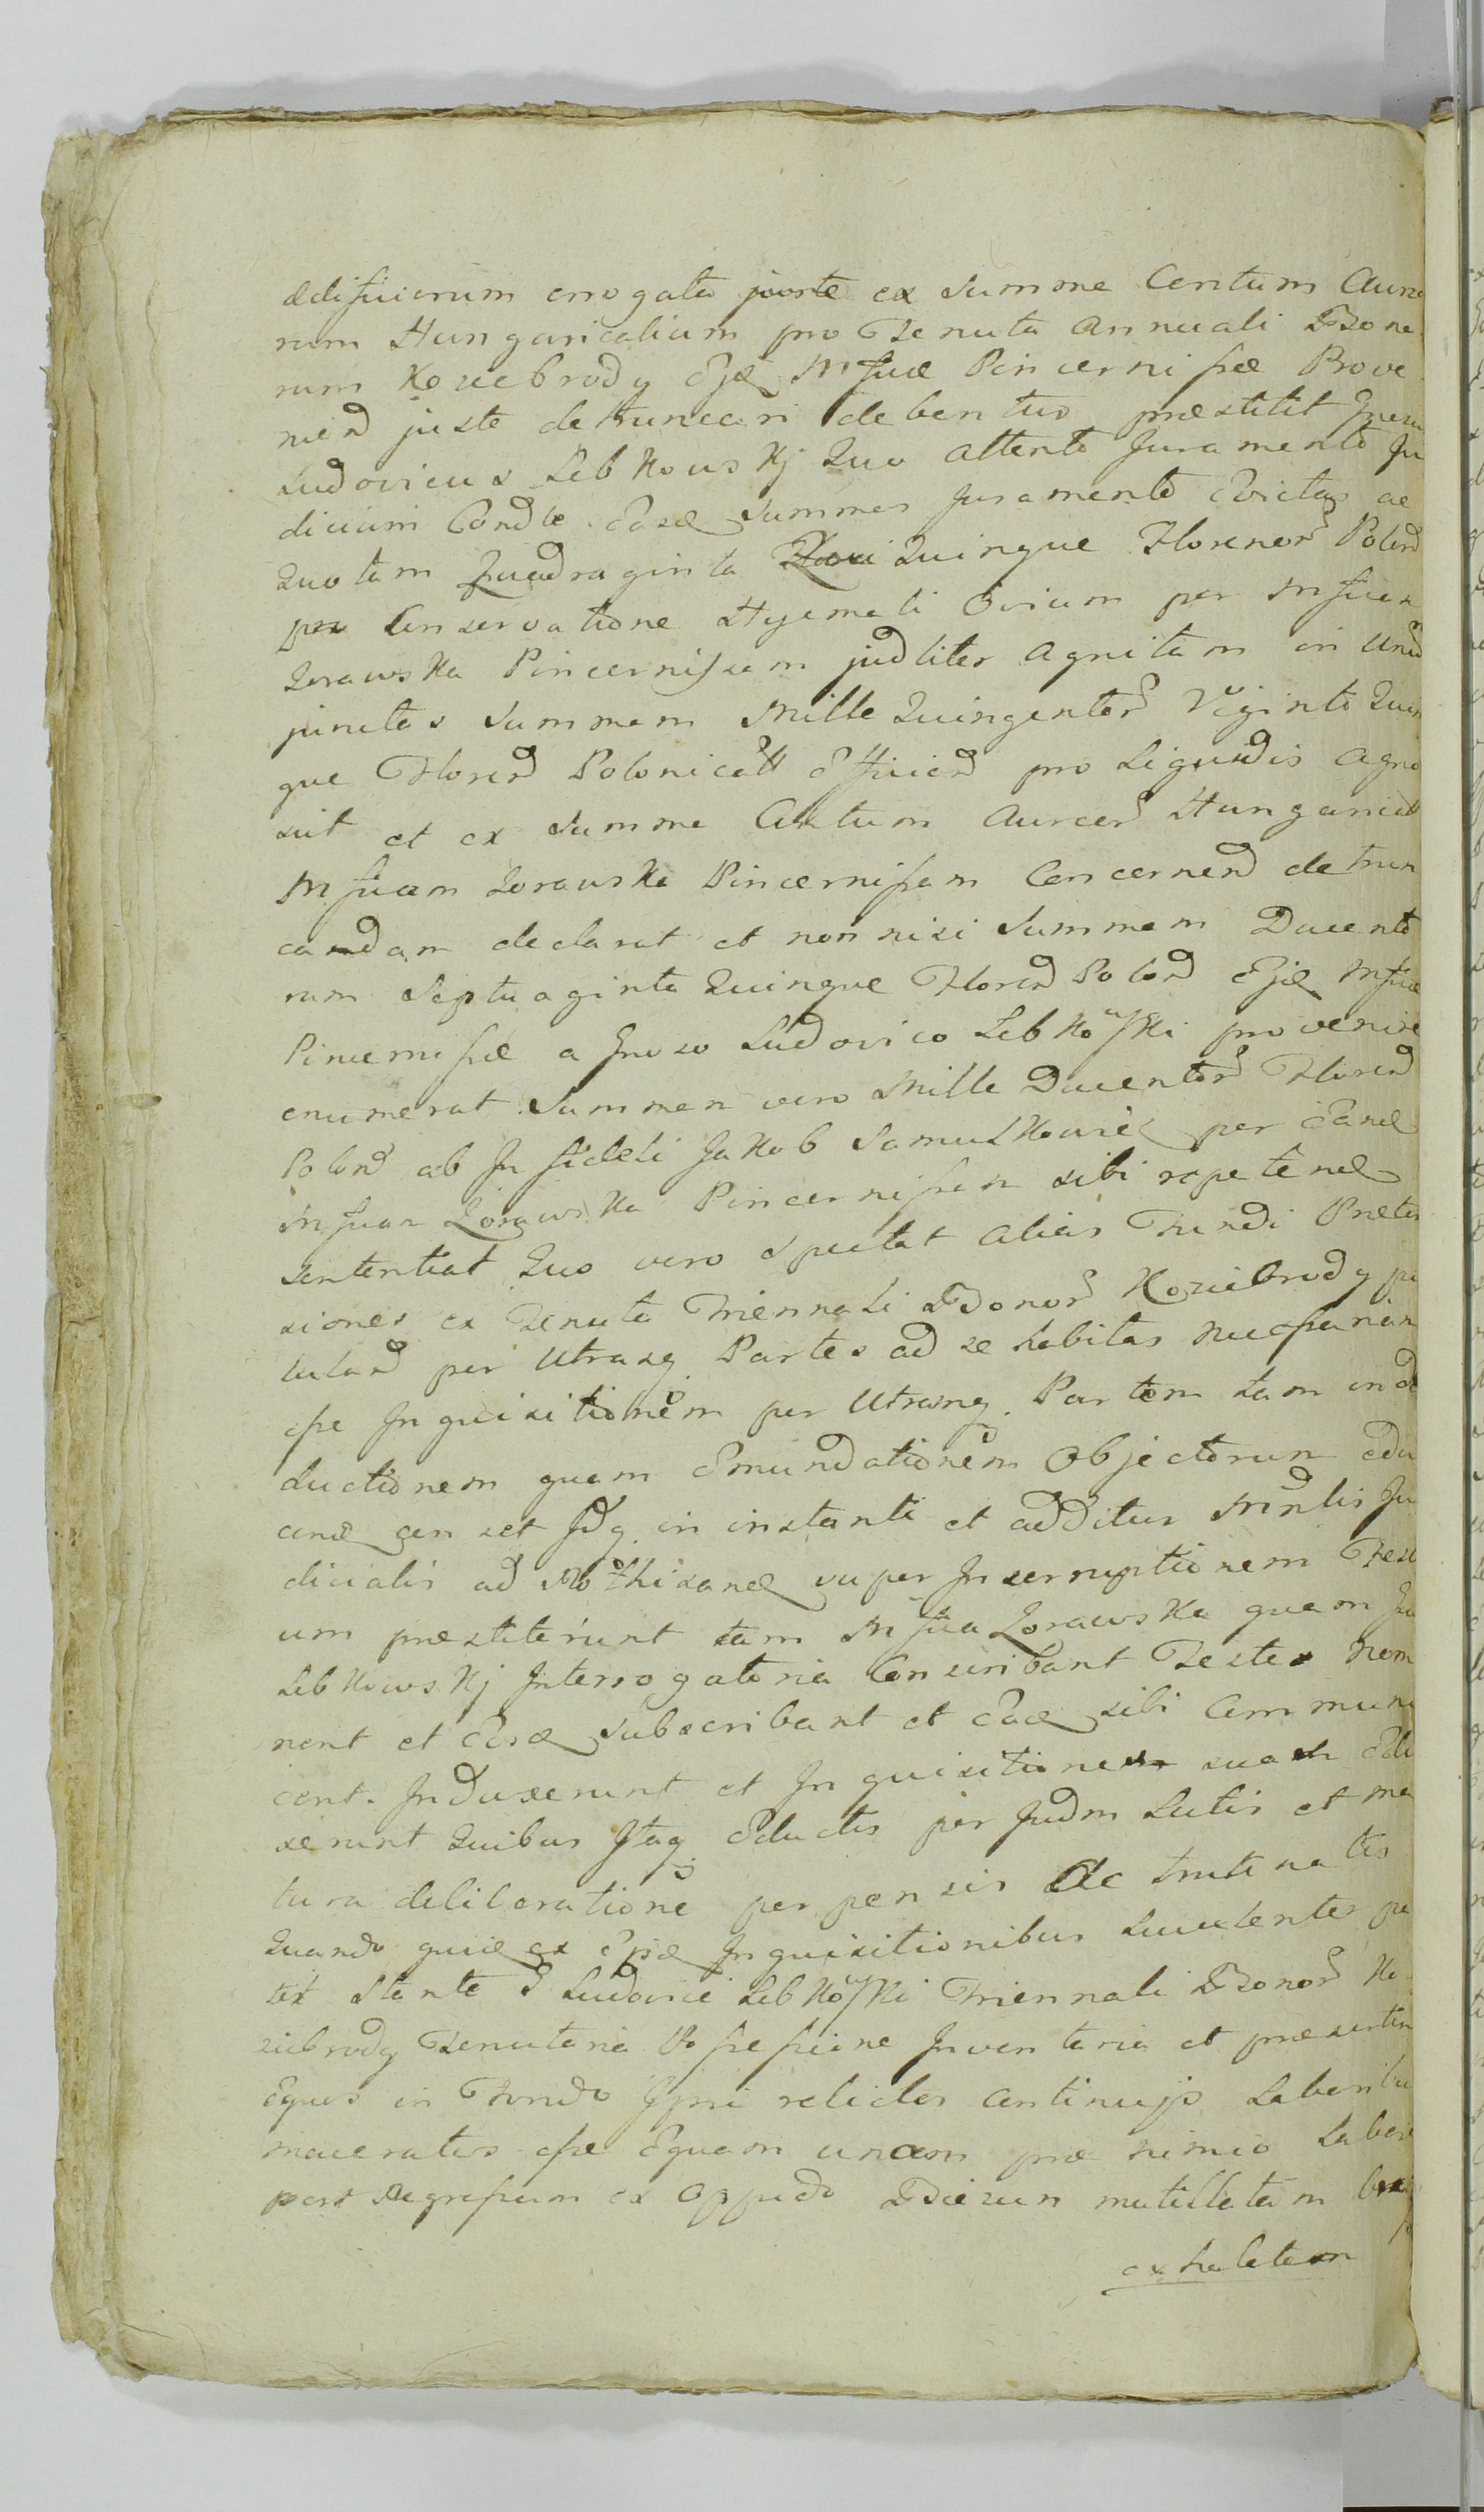 ædificiorum errogata juste ex Summe Centum Aure
rum Hungaricalium pro Tenuta Annuali Bono
rum Koziebrody Ejdę Mficæ Pincernissæ Prove
niend juste detruncari debentur præstitit Gnerus
Ludovicus Lebkowskj Quo Attento Juramento Ju
dicium Condte Easdę Summas Juramento Evictas ac
Quotam Quadraginta Quinque Florenor Polond
pro Conservatione Hyemali Ovium per Mficam
Zorawska Pincernissam judliter Agnitam in Unū
junctas Summam Mille Quingentor Viginti Quin
que Florend Polonicall Efficiend pro Liquidis Agno
scit et ex Summa Centum Aureor Hungaricall
Mficam Zorawska Pincernissam Concernend detrun
candam declarat et non nisi Summam Ducento
rum Septuaginta Quinque Florend Polond Ejdę Mficæ
Pincernissæ a Gnoso Ludovico Lebkowski provenire
enumerat Summam vero Mille Ducentor Florend
Polond ab Infideli Jakob Samulkowicz per Eandę
Mficam Zorawska Pincernissam sibi repetendę
Sententiat Quo vero Spectat Alias Fundi Præten
siones ex Tenuta Triennali Bonor Koziebrody po
tuland per Utrasq Partes ad se habitas necessariam
esse Inquisitionem per Utramq Partem tam in de
ductionem quam Emundationem Objectorum edu
cendę censet Idq in instanti et additus Mndtis Ju
dicialis ad Rothisandę super Inserruptionem Testi
um præstiterunt tam Mfica Zorawska quam
Lebkowskj Interrogatoria Conscribant Testes Nom
nent et Eosdę Subscribant et Eadę sibi Commune
cent. Induxerunt et Inquisitiones suas Edu
xerunt Quibus Itaq Eductis per Judm Lectis et ma
tura deliberatione perpensis Ac trutinatis
Quando quidę ex Eisdę Inquisitionibus Luculenter pa
tet Stante G Ludovici Lebkowski Triennali Bonor Ko
ziebrody Tenutoria Possessione Inventaria et præsertim
Equos in Fundo Ipsi relictos Continuis Laboribus
maceratos esse Equam unam præ nimio Labore
post Regressum ex Oppido Biezun mutillatam
exhaletam